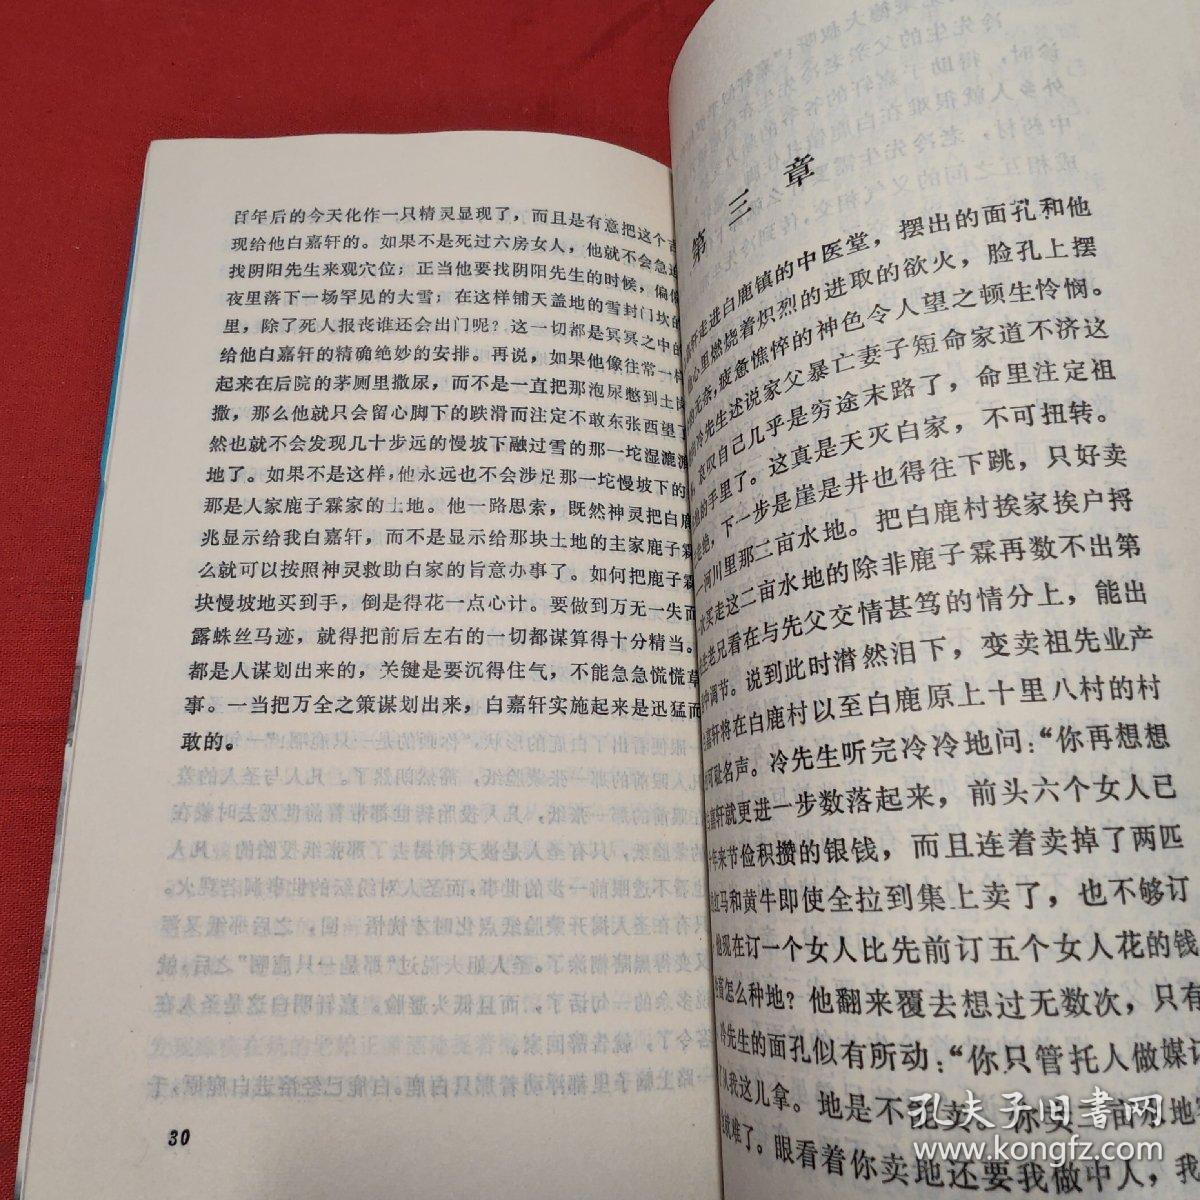 百年后的今天化作一只精灵显现了，而且是有意把这个吉
现给他白嘉轩的。如果不是死过六房女人，他就不会急迫
找阴阳先生来观穴位；正当他要找阴阳先生的时候，偏偏
夜里落下一场罕见的大雪；在这样铺天盖地的雪封门坎的
里，除了死人报丧谁还会出门呢？这一切都是冥冥之中的
给他白嘉轩的精确绝妙的安排。再说，如果他像往常一样
起来在后院的茅厕里撒尿，而不是一直把那泡尿憋到土岗
撒，那么他就只会留心脚下的跌滑而注定不敢东张西望了
然也就不会发现几十步远的慢坡下融过雪的那一坨湿漉漉
地了。如果不是这样，他永远也不会涉足那一坨慢坡下的
那是人家鹿子霖家的土地。他一路思索，既然神灵把白鹿
兆显示给我白嘉轩，而不是显示给那块土地的主家鹿子霖
么就可以按照神灵救助白家的旨意办事了。如何把鹿子霖
块慢坡地买到手，倒是得花一点心计。要做到万无一失而
露蛛丝马迹，就得把前后左右的一切都谋算得十分精当。
都是人谋划出来的，关键是要沉得住气，不能急急慌慌草
事。一当把万全之策谋划出来，白嘉轩实施起来是迅猛而
敢的。
30
第三章
轩走进白鹿镇的中医堂，摆出的面孔和他
心里燃烧着炽烈的进取的欲火，脸孔上摆
的无奈，疲惫憔悴的神色令人望之顿生怜悯。
冷先生述说家父暴亡妻子短命家道不济这
，哀叹自己几乎是穷途末路了，命里注定祖
的手里了。这真是天灭白家，不可扭转。
绝，下一步是崖是井也得往下跳，只好卖
河川里那二亩水地。把白鹿村挨家挨户捋
买走这二亩水地的除非鹿子霖再数不出第
老兄看在与先父交情甚笃的情分上，能出
中调节。说到此时潸然泪下，变卖祖先业产
嘉轩将在白鹿村以至白鹿原上十里八村的村
可耻名声。冷先生听完冷冷地问：“你再想想
嘉轩就更进一步数落起来，前头六个女人已
年来节俭积攒的银钱，而且连着卖掉了两匹
红马和黄牛即使全拉到集上卖了，也不够订
他现在订一个女人比先前订五个女人花的钱
怎么种地？他翻来覆去想过无数次，只有
冷先生的面孔似有所动：“你只管托人做媒订
从我这儿拿。地是不能卖。你卖二亩水地
就难了。眼看着你卖地还要我做中人，我
孔夫子旧书网
www.kongfz.com